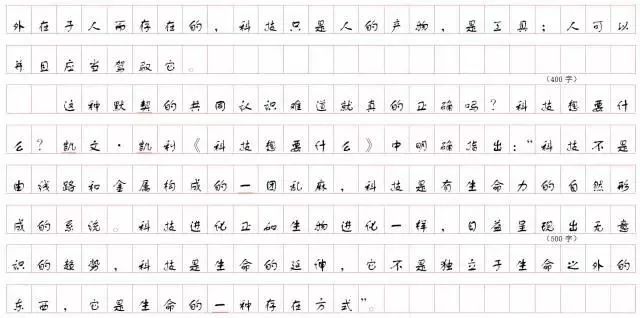 外在于人而存在的，科技只是人的产物，是工具；人可以
并且应当驾驭它。
（400字）
这种默契的共同认识难道就真的正确吗？科技想要什
么？凯文·凯利《科技想要什么》中明确指出：“科技不是
由线路和金属构成的一团乱麻，科技是有生命力的自然形
成的系统。科技进化正如生物进化一样，日益呈现出无意
（500字）
识的趋势，科技是生命的延伸，它不是独立于生命之外的
东西，它是生命的一种存在方式”。